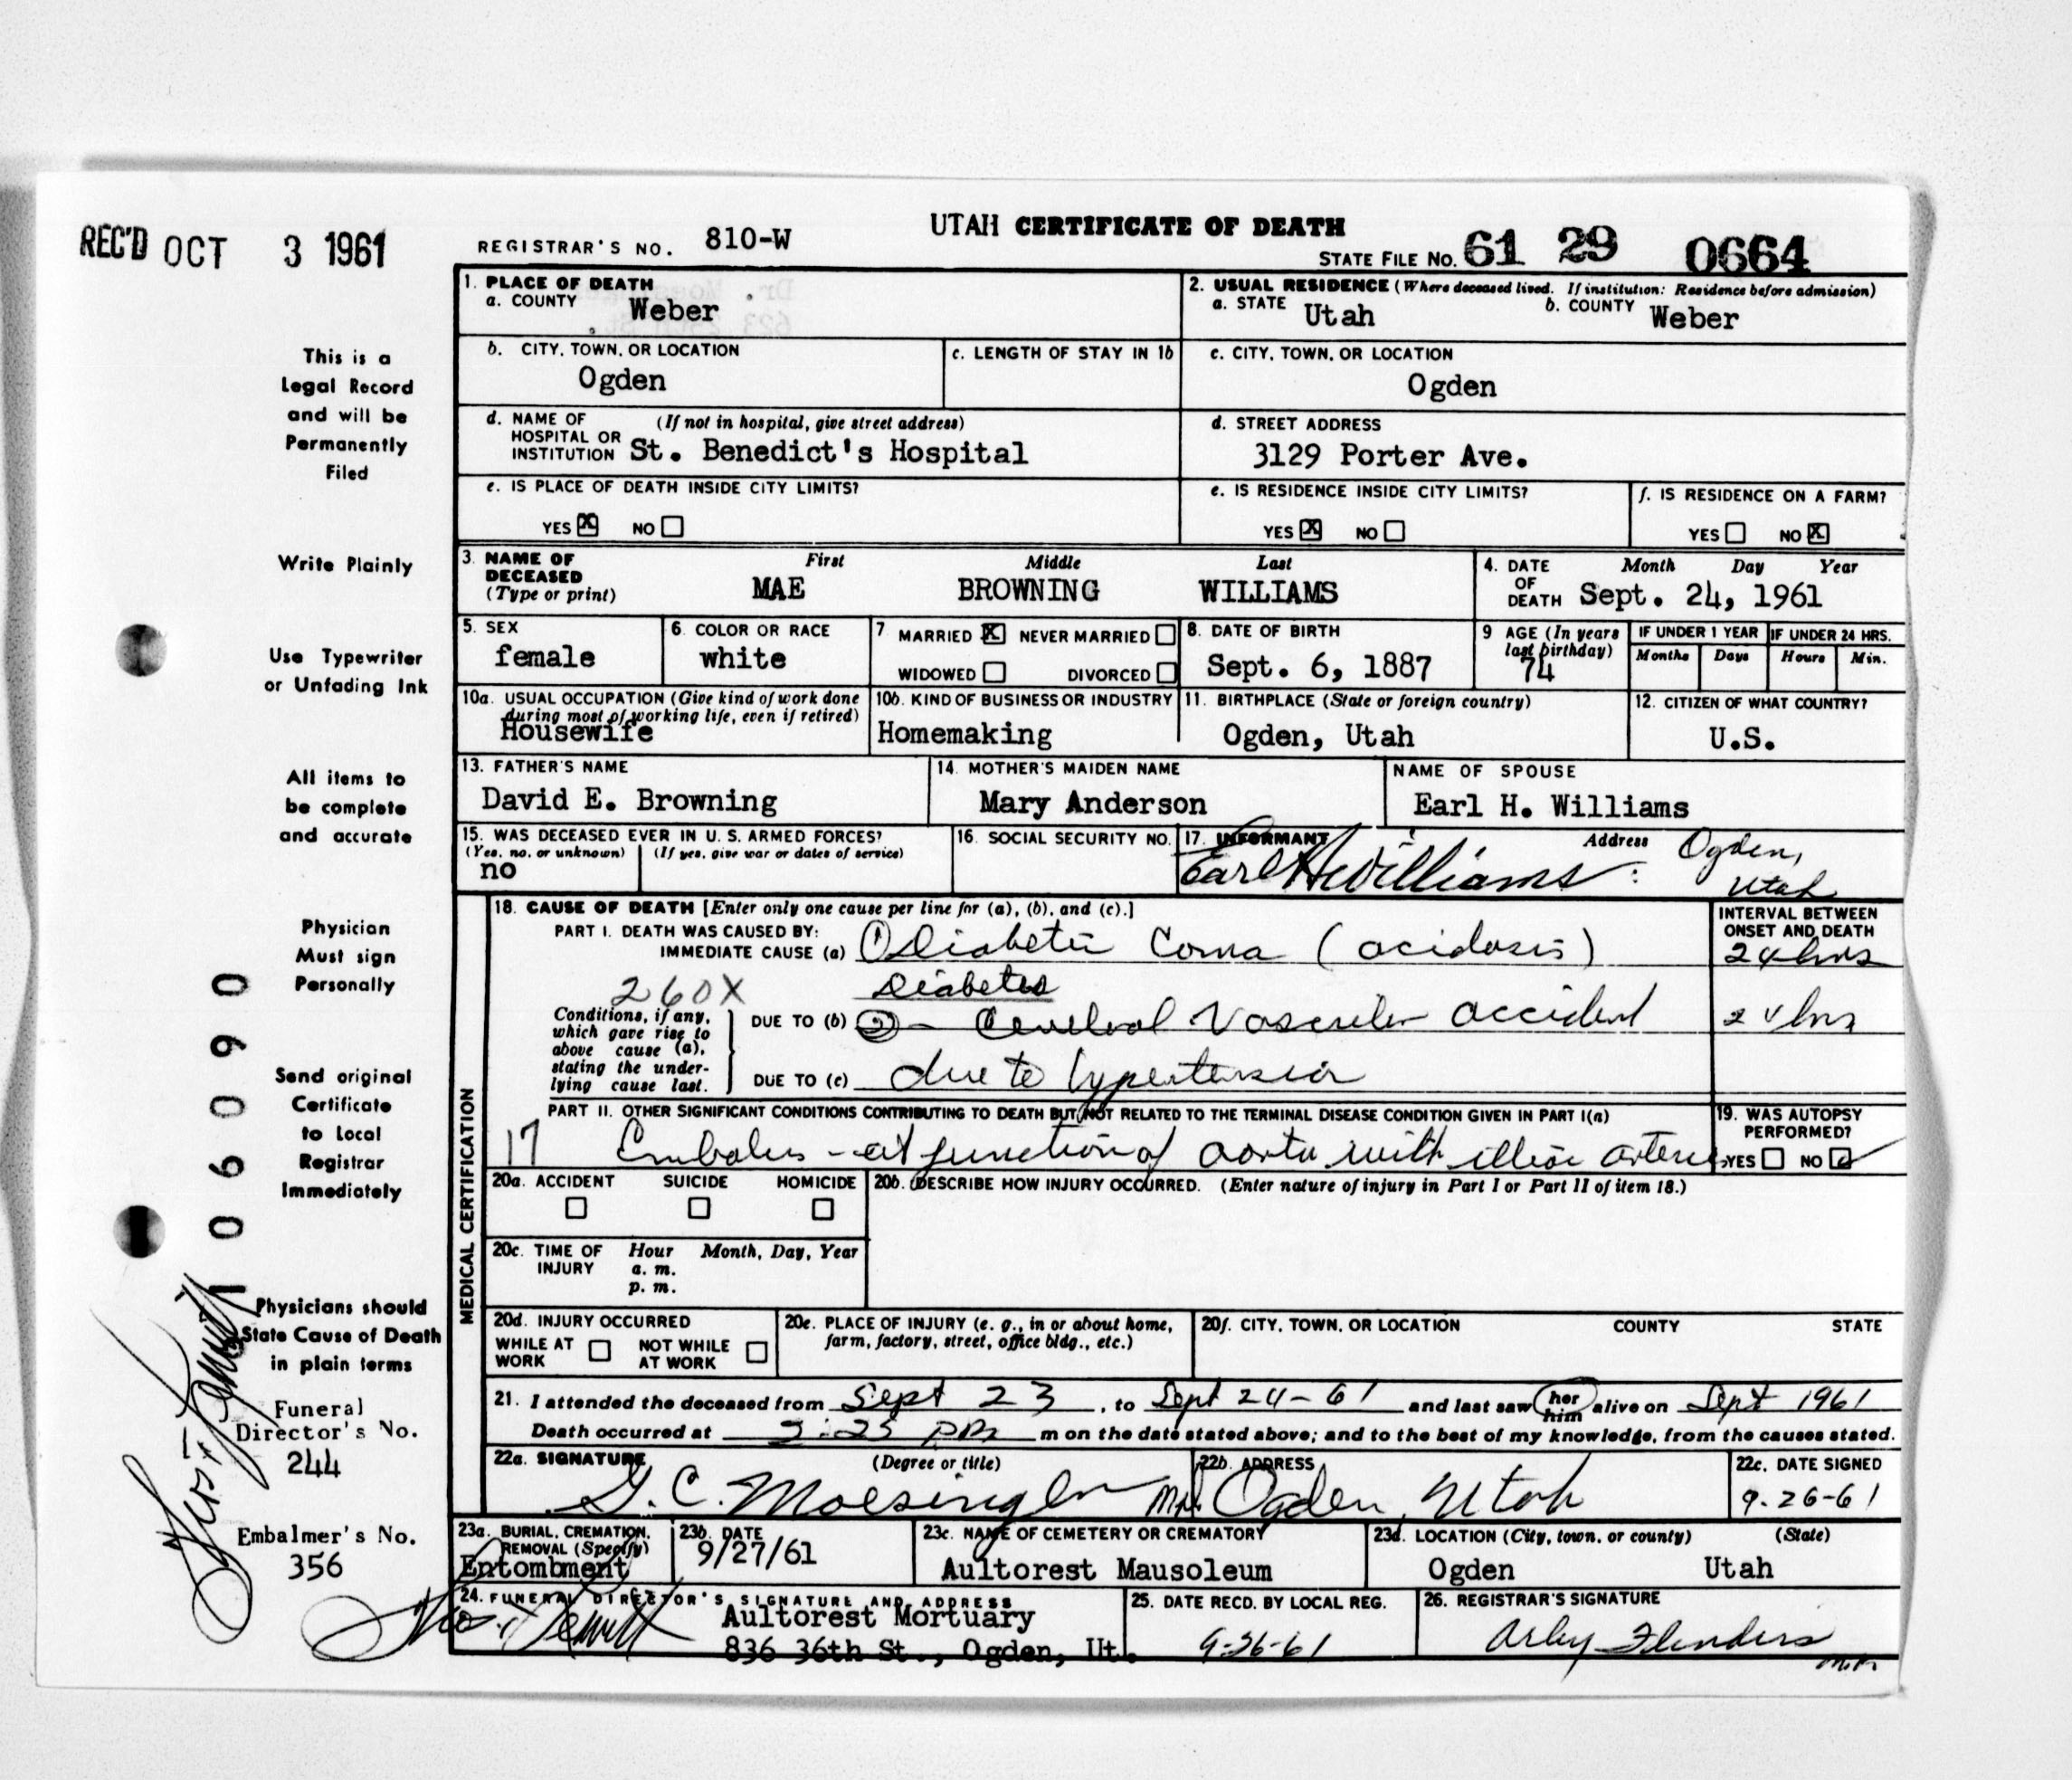 REC'D OCT 3 1961
REGISTRAR'S NO. 810-W
UTAH CERTIFICATE OF DEATH
STATE FILE No. 61 29 0664
1. PLACE OF DEATH
a. COUNTY Weber
2. USUAL RESIDENCE (Where deceased lived. If institution: Residence before admission)
a. STATE Utah b. COUNTY Weber
b. CITY, TOWN, OR LOCATION
Ogden
c. LENGTH OF STAY IN 1b
c. CITY, TOWN, OR LOCATION
Ogden
d. NAME OF HOSPITAL OR INSTITUTION (If not in hospital, give street address)
St. Benedict's Hospital
d. STREET ADDRESS
3129 Porter Ave.
e. IS PLACE OF DEATH INSIDE CITY LIMITS?
YES X NO
e. IS RESIDENCE INSIDE CITY LIMITS?
YES X NO
f. IS RESIDENCE ON A FARM?
YES NO X
3. NAME OF DECEASED (Type or print)
First Middle Last
MAE BROWNING WILLIAMS
4. DATE OF DEATH Month Day Year
Sept. 24, 1961
5. SEX
female
6. COLOR OR RACE
white
7 MARRIED X NEVER MARRIED
WIDOWED DIVORCED
8. DATE OF BIRTH
Sept. 6, 1887
9 AGE (In years last birthday)
74
IF UNDER 1 YEAR
Months Days
IF UNDER 24 HRS.
Hours Min.
10a. USUAL OCCUPATION (Give kind of work done during most of working life, even if retired)
Housewife
10b. KIND OF BUSINESS OR INDUSTRY
Homemaking
11. BIRTHPLACE (State or foreign country)
Ogden, Utah
12. CITIZEN OF WHAT COUNTRY?
U.S.
13. FATHER'S NAME
David E. Browning
14. MOTHER'S MAIDEN NAME
Mary Anderson
NAME OF SPOUSE
Earl H. Williams
15. WAS DECEASED EVER IN U. S. ARMED FORCES?
(Yes, no, or unknown) (If yes, give war or dates of service)
no
16. SOCIAL SECURITY NO.
17. INFORMANT Address
Earl H Williams Ogden, Utah
MEDICAL CERTIFICATION
18. CAUSE OF DEATH [Enter only one cause per line for (a), (b), and (c).]
PART I. DEATH WAS CAUSED BY:
IMMEDIATE CAUSE (a) ① Diabetic Coma (acidosis)
INTERVAL BETWEEN ONSET AND DEATH
24 hrs
260X Diabetes
Conditions, if any, which gave rise to above cause (a), stating the underlying cause last.
DUE TO (b) ② - Cerebral Vascular accident 24 hrs
DUE TO (c) due to hypertension
PART II. OTHER SIGNIFICANT CONDITIONS CONTRIBUTING TO DEATH BUT NOT RELATED TO THE TERMINAL DISEASE CONDITION GIVEN IN PART I(a)
17 Embolus - at junction of aorta with illiac arteries
19. WAS AUTOPSY PERFORMED?
YES NO
20a. ACCIDENT SUICIDE HOMICIDE
20b. DESCRIBE HOW INJURY OCCURRED. (Enter nature of injury in Part I or Part II of item 18.)
20c. TIME OF INJURY Hour Month, Day, Year
a. m.
p. m.
20d. INJURY OCCURRED
WHILE AT WORK NOT WHILE AT WORK
20e. PLACE OF INJURY (e. g., in or about home, farm, factory, street, office bldg., etc.)
20f. CITY, TOWN, OR LOCATION COUNTY STATE
21. I attended the deceased from Sept 23, to Sept 24-61 and last saw her him alive on Sept 1961
Death occurred at 2:25 PM m on the date stated above; and to the best of my knowledge, from the causes stated.
22a. SIGNATURE (Degree or title)
G. C. Moesinger MD
22b. ADDRESS
Ogden, Utah
22c. DATE SIGNED
9-26-61
23a. BURIAL, CREMATION, REMOVAL (Specify)
Entombment
23b. DATE
9/27/61
23c. NAME OF CEMETERY OR CREMATORY
Aultorest Mausoleum
23d. LOCATION (City, town, or county) (State)
Ogden Utah
24. FUNERAL DIRECTOR'S SIGNATURE AND ADDRESS
Aultorest Mortuary
836 36th St., Ogden, Ut.
25. DATE RECD. BY LOCAL REG.
9-26-61
26. REGISTRAR'S SIGNATURE
Arley Flinders
This is a
Legal Record
and will be
Permanently
Filed
Write Plainly
Use Typewriter
or Unfading Ink
All items to
be complete
and accurate
Physician
Must sign
Personally
Send original
Certificate
to Local
Registrar
Immediately
Physicians should
State Cause of Death
in plain terms
Funeral
Director's No.
244
Embalmer's No.
356
106090